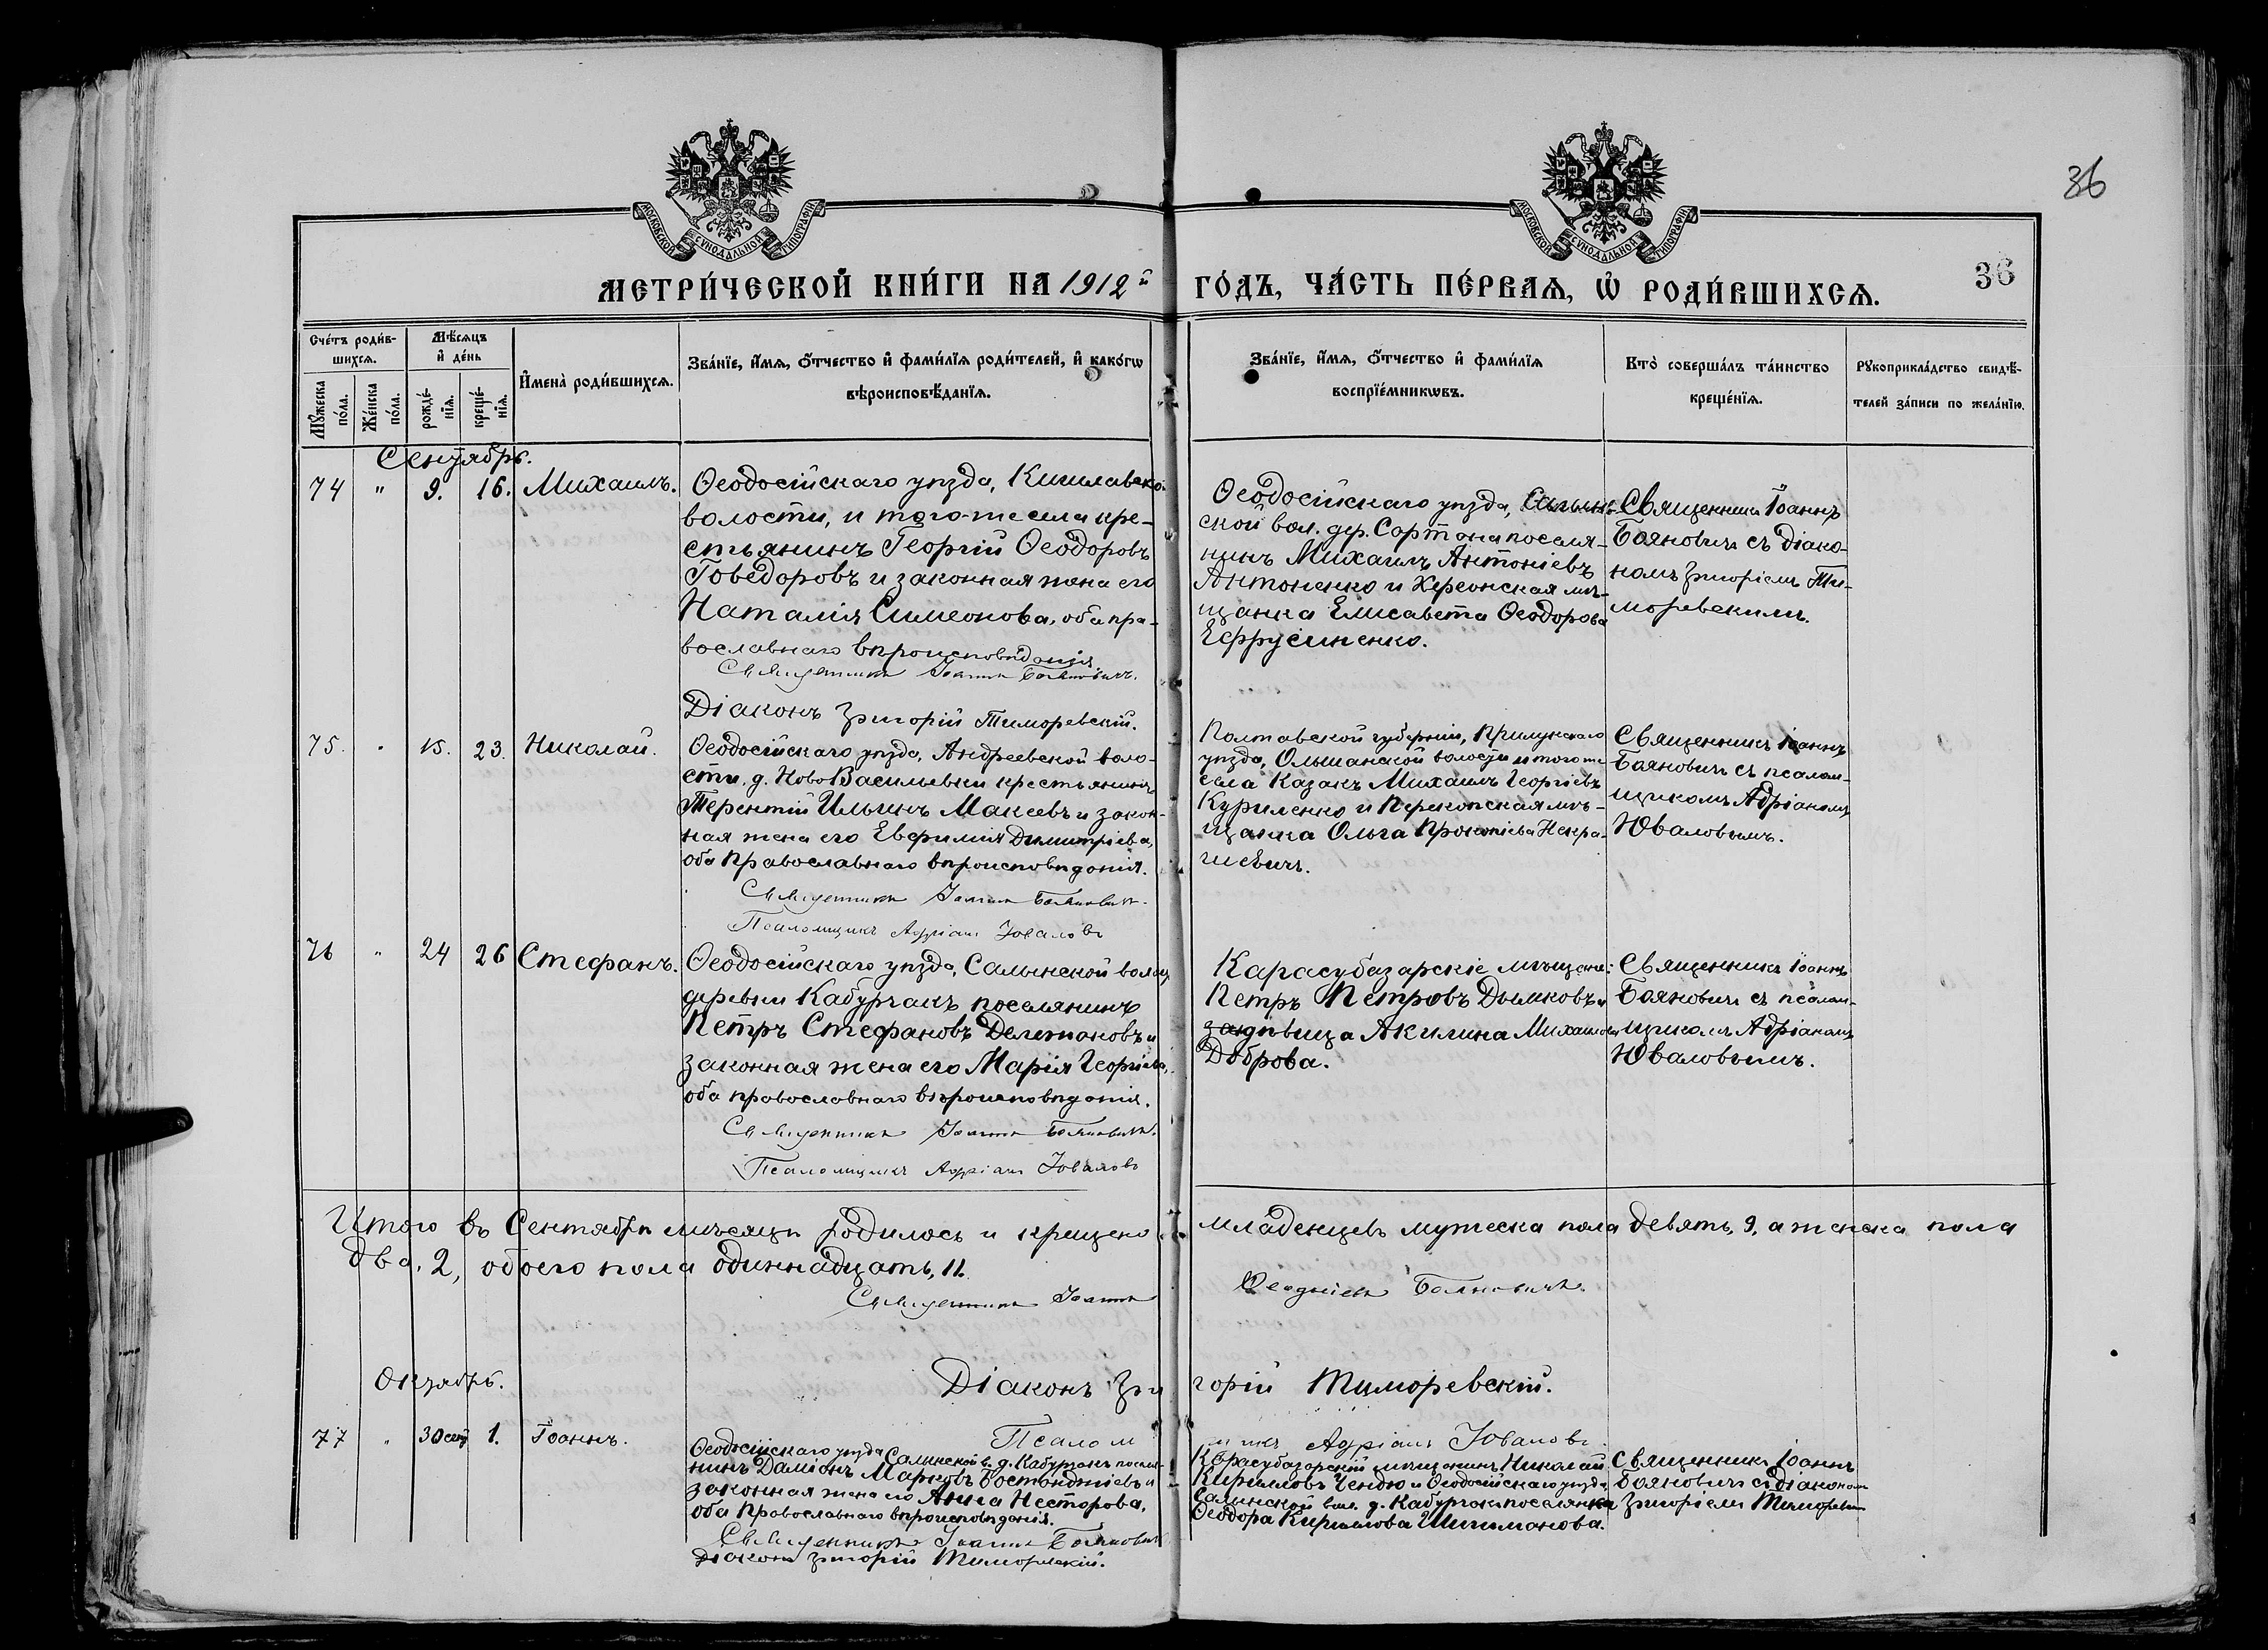 36
МОСКОВСКОЙ СУНОДАЛЬНОЙ ТИПОГРАФІИ
МОСКОВСКОЙ СУНОДАЛЬНОЙ ТИПОГРАФІИ
МЕТРИ́ЧЕСКОЙ КНИ́ГИ НА 1912й ГО́ДЪ, ЧА́СТЬ ПЕ́РВАѦ, Ѡ҆ РОДИ́ВШИХСѦ.
36
Сче́тъ роди́в-
шихсѧ.
Мꙋжеска по́ла.
Же́нска по́ла.
Мѣ́сѧцъ и҆ де́нь
рожде́-нїѧ.
креще́-нїѧ.
И҆мена̀ роди́вшихсѧ.
Зва́нїе, и҆́мѧ, ѻ҆́тчество и҆ фами́лїѧ роди́телей, и҆ како́гѡ
вѣроисповѣ́данїѧ.
Зва́нїе, и҆́мѧ, ѻ҆́тчество и҆ фами́лїѧ
воспрїе́мникѡвъ.
Кто̀ соверша́лъ та́инство
креще́нїѧ.
Рꙋкоприкла́дство свидѣ́-
телей за́писи по жела́нїю.
Сентябрь.
74 " 9. 16. Михаилъ.
Ѳеодосійскаго уѣзда,
волости, и того-же села кре-
стьянинъ Георгій Ѳеодоровъ
Говедоровъ и законная жена его
Наталія Симеонова, оба пра-
вославнаго вѣроисповѣданія.
Священникъ Іоаннъ Баяновичъ.
Діаконъ Григорій Тиморевскій.
Ѳеодосійскаго уѣзда,
ской вол. дер. Сартана поселя-
нинъ Михаилъ Антоніевъ
Антоненко и Херсонская мѣ-
щанка Елисавета Ѳеодорова
Ефрусиненко.
Священникъ Іоаннъ
Баяновичъ съ діако-
номъ Григоріемъ Ти-
моревскимъ.
75. " 15. 23. Николай.
Ѳеодосійскаго уѣзда, Андреевской воло-
сти, д. НовоВасильевки крестьянинъ
Терентій Ильинъ Макеевъ и закон-
ная жена его Евфимія Димитріева,
оба православнаго вѣроисповѣданія.
Священникъ Іоаннъ Баяновичъ.
Псаломщикъ Адріанъ Юваловъ
Полтавской губерніи, Прилукскаго
уѣзда, Ольшанской волости и того же
села казакъ Михаилъ Георгіевъ
Куриленко и Перекопская мѣ-
щанка Ольга Прокопіева Некра-
шевичъ.
Священникъ Іоаннъ
Баяновичъ съ псалом-
щикомъ Адріаномъ
Юваловымъ.
76 " 24 26 Стефанъ.
Ѳеодосійскаго уѣзда, Салынской волос.
деревни Кабурчакъ поселянинъ
Петръ Стефановъ и
законная жена его Марія Георгіева,
оба православнаго вѣроисповѣданія.
Священникъ Іоаннъ Баяновичъ.
Псаломщикъ Адріанъ Юваловъ
Карасубазарскіе мѣщане:
Петръ Петровъ Дымковъ и
дѣвица Акилина Михаилова
Доброва.
Священникъ Іоаннъ
Баяновичъ съ псалом-
щикомъ Адріаномъ
Юваловымъ.
Итого въ Сентябрѣ мѣсяцѣ родилось и крещено младенцевъ мужеска пола девять, 9, а женска пола
два, 2, обоего пола одиннадцать, 11.
Священникъ Іоаннъ Баяновичъ.
Октябрь.
Діаконъ Григорій Тиморевскій.
Псаломщикъ Адріанъ Юваловъ.
77 " 30 сент 1. Іоаннъ.
Ѳеодосійскаго уѣзда Салынской в. д. Кабурчакъ поселя-
нинъ Даміонъ Марковъ Бостонджіевъ и
законная жена его Анна Несторова,
оба православнаго вѣроисповѣданія.
Священникъ Іоаннъ Баяновичъ
Діаконъ Григорій Тиморевскій.
Карасубазарскій мѣщанинъ Николай
Кирилловъ Чендю и Ѳеодосійскаго уѣзда,
Салынской вол. д. Кабурчакъ поселянка
Ѳеодора Кириллова Шишманова.
Священникъ Іоаннъ
Баяновичъ съ діакономъ
Григоріемъ Тиморевск